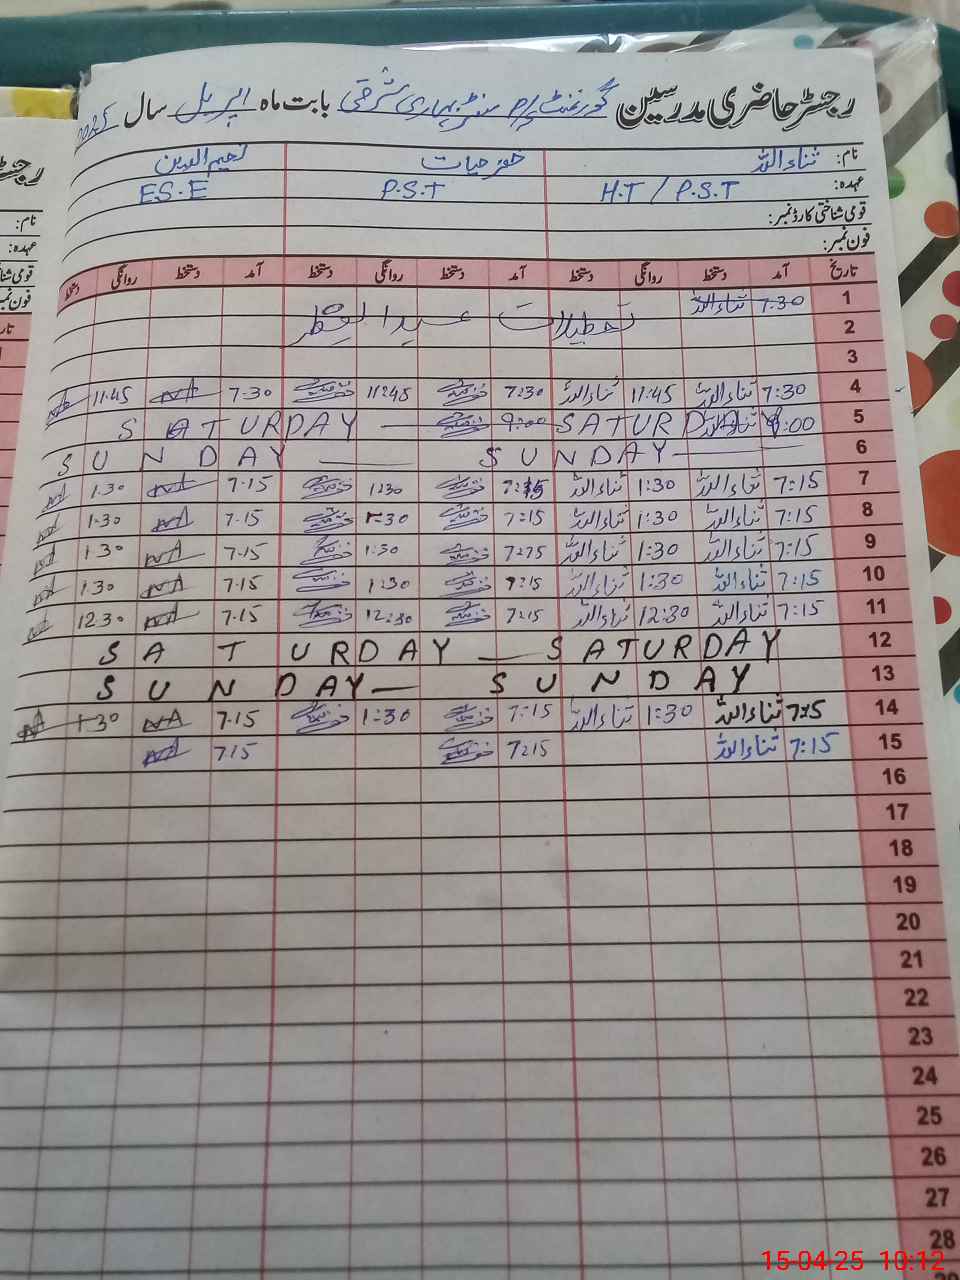 رجسٹر حاضری مدرسین گورنمنٹ P/S سنٹر بہاری شرقی بابت ماہ اپریل سال 2025
نام: ثناء اللہ خضر حیات نعیم الدین
عہدہ: H.T / P.S.T P.S.T E.S.E
قومی شناختی کارڈ نمبر:
فون نمبر:
تاریخ آمد دستخط روانگی دستخط آمد دستخط روانگی دستخط آمد دستخط روانگی دستخط
1 7:30 ثناء اللہ
2 تعطیلات عید الفطر
3
4 7:30 ثناء اللہ 11:45 ثناء اللہ 7:30 11:45 7:30 NA 11:45 NA
5 :00 ثناء اللہ SATURDAY 9:00 SATURDAY
6 SUNDAY SUNDAY
7 7:15 ثناء اللہ 1:30 ثناء اللہ 7:15 1:30 7.15 NA 1.30 NA
8 7:15 ثناء اللہ 1:30 ثناء اللہ 7:15 1:30 7.15 NA 1.30 NA
9 7:15 ثناء اللہ 1:30 ثناء اللہ 7:15 1:30 7.15 NA 1.30 NA
10 7:15 ثناء اللہ 1:30 ثناء اللہ 7:15 1:30 7.15 NA 1.30 NA
11 7:15 ثناء اللہ 12:30 ثناء اللہ 7:15 12:30 7.15 NA 12.30 NA
12 SATURDAY — SATURDAY
13 SUNDAY — SUNDAY
14 7:15 ثناء اللہ 1:30 ثناء اللہ 7:15 1:30 7.15 NA 1.30 NA
15 7:15 ثناء اللہ 7:15 7.15 NA
16
17
18
19
20
21
22
23
24
25
26
27
28
29
رجسٹر
نام:
عہدہ:
قومی شنا
فون نمبر:
تار
15-04-25 10:12